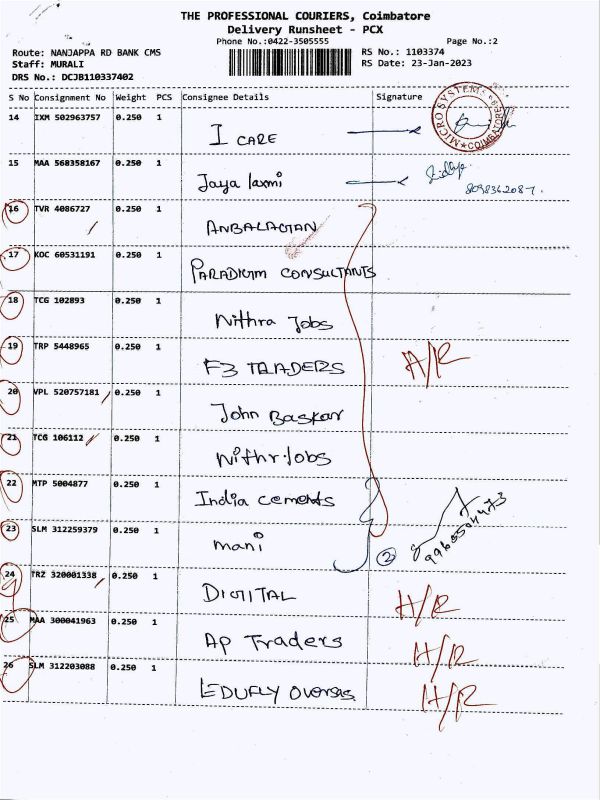 THE PROFESSIONAL COURIERS, Coimbatore
Delivery Runsheet - PCX
Phone No.:0422-3505555 Page No.:2
Route: NANJAPPA RD BANK CMS RS No.: 1103374
Staff: MURALI RS Date: 23-Jan-2023
DRS No.: DCJB110337402
S No Consignment No Weight PCS Consignee Details Signature
14 IXM 502963757 0.250 1 I CARE
MICRO SYSTEMS COIMBATORE
15 MAA 568358167 0.250 1 Jaya laxmi
16 TVR 4086727 0.250 1 ANBALAGAN
17 KOC 60531191 0.250 1 PARADIGM CONSULTANTS
18 TCG 102893 0.250 1 Nithra Jobs
19 TRP 5448965 0.250 1 F3 TRADERS A/R
20 VPL 520757181 0.250 1 John Baskar
21 TCG 106112 0.250 1 Nithr Jobs
22 MTP 5004877 0.250 1 India cements
23 SLM 312259379 0.250 1 mani 2
24 TRZ 320001338 0.250 1 DIGITAL H/R
25 MAA 300041963 0.250 1 AP Traders H/R
26 SLM 312203088 0.250 1 EDUFLY Overses H/R